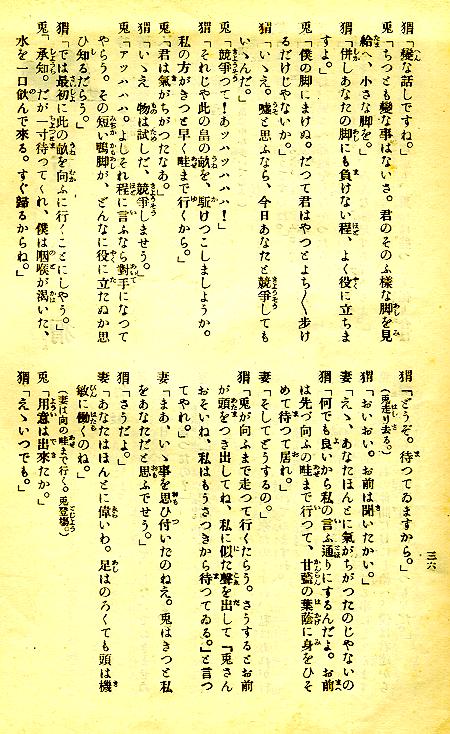 猬「變な話しですね。」
兎「ちつとも變な事はないさ。君のそのふ樣な脚を見
給へ、小さな脚を。」
猬「併しあなたの脚にも負けない程、よく役に立ちま
すよ。」
兎「僕の脚にまけぬ。だつて君はやつとよち〳〵步け
るだけじやないか。」
猬「いゝえ。嘘と思ふなら、今日あなたと競爭しても
いゝんだ。」
兎「競爭つて！あツハハハハ！」
猬「それじや此の畠の畝を、駈けつこしましようか。
私の方がきつと早く畦まで行くから。」
兎「君は氣がちがつたなあ。」
猬「いゝえ 物は試しだ、競爭しませう。」
兎「アツハハハハ。よしそれ程に言ふなら對手になつて
やらう。その短い鴨脚が、どんなに役に立たぬか思
ひ知るだらう。」
猬「では最初に此の畝を向ふに行くことにしやう。」
兎「承知。だが一寸待つてくれ、僕は咽喉が渴いた、
水を一口飮んで來る。すぐ歸るからね。」
猬「どうぞ。待つてゐますから。」
（兎走り去る。）
猬「おい〳〵。お前は聞いたかい。」
妻「えゝ、あなたほんとに氣がちがつたのじやないの
猬「何でも良いから私の言ふ通りにするんだよ。お前
は先づ向ふの畦まで行つて、甘藍の葉蔭に身をひそ
めて待つて居れ。」
妻「そしてどうするの。」
猬「兎が向ふまで走つて行くたらう。さうするとお前
が頭をつき出してね、私に似た聲を出して『兎さん
おそいね、私はもうさつきから待つてゐる。』と言つ
てやれ。」
妻「まあ、いゝ事を思ひ付いたのねえ。兎はきつと私
をあなただと思ふでせう。」
猬「さうだよ。」
妻「あなたはほんとに偉いわ。足はのろくても頭は機
敏に働くのね。」
（妻は向の畦まで行く。兎登場。）
兎「用意は出來たか。」
猬「えゝいつでも。」
三六